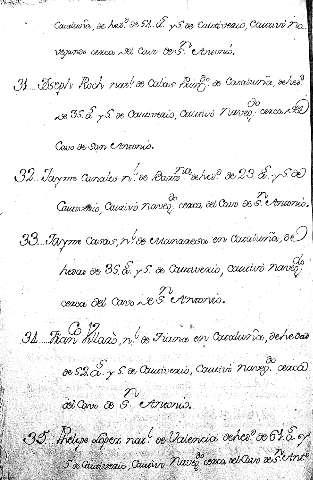 Cataluña, de hed.ᵈ de 52. a.ˢ y 5 de Cautiverio, Cautivó Na-
vegando cerca del Cavo de S.ⁿ Antonio.
31... Joseph Roch nat.ˡ de Calaf Prin.ᵈᵒ de Cataluña, de hed.ᵈ
de 35. a.ˢ y 5 de Cautiverio, Cautivó Naveg.ᵈᵒ cerca del
Cavo de San Antonio.
32.. Jayme Canales n.ˡ de Barz.ⁿᵃ de hed.ᵈ de 23 a.ˢ y 5 de
Cautiverio, Cautivó naveg.ᵈᵒ cerca del Cavo de S.ⁿ Antonio.
33... Jayme Casas, n.ˡ de Manaresa en Cataluña, de
hedad de 35. a.ˢ y 5. de Cautiverio, cautivó naveg.ᵈᵒ
cerca del Cavo de S.ⁿ Antonio.
34... Fran.ᶜᵒ n.ˡ de en Cataluña, de hedad
de 52. a.ˢ y 5. de Cautiverio, Cautivó naveg.ᵈᵒ cerca
del Cavo de S.ⁿ Antonio.
35.. Phelipe Lopez nat.ˡ de Valencia de hed.ᵈ de 67. a.ˢ y
5 de Cautiverio, Cautivó Naveg.ᵈᵒ cerca del Cavo de S.ⁿ Ant.ᵒ